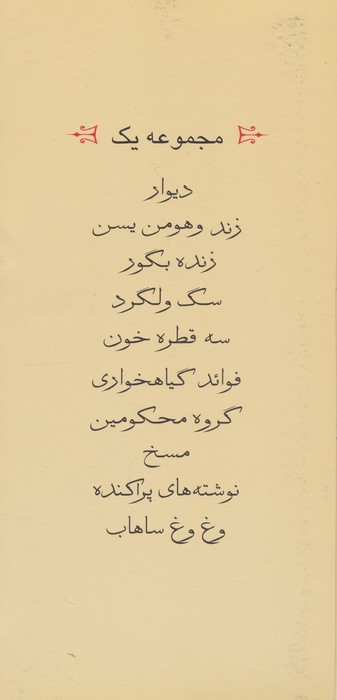 مجموعه یک
دیوار
زند وهومن یسن
زنده بگور
سگ ولگرد
سه قطره خون
فوائد گیاهخواری
گروه محکومین
مسخ
نوشته‌های پراکنده
وغ وغ ساهاب